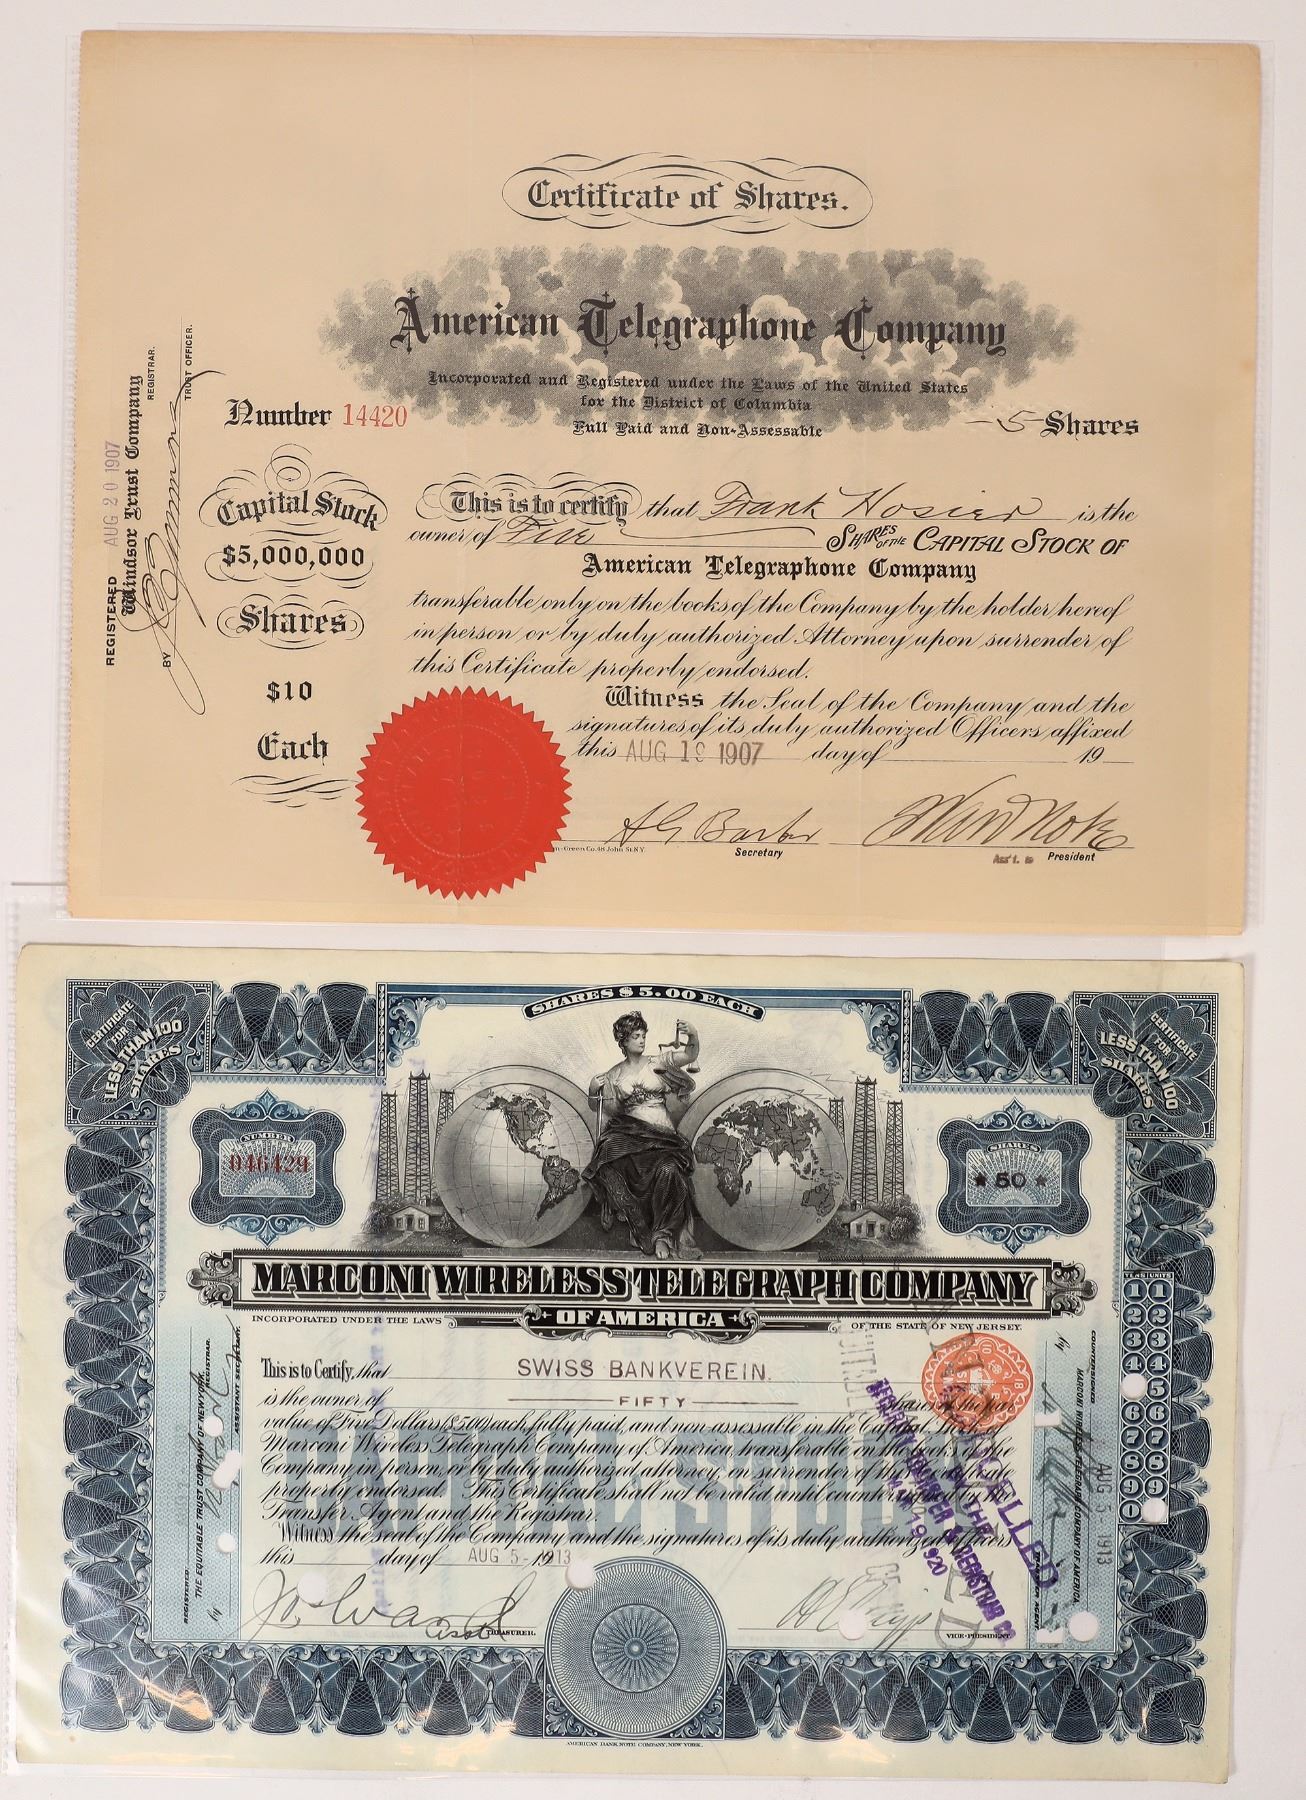 Certificate of Shares.
American Telegraphone Company
Incorporated and Registered under the Laws of the United States
for the District of Columbia
Full Paid and Non-Assessable
Number 14420
5 Shares
REGISTERED AUG 20 1907
Windsor Trust Company
REGISTRAR.
BY
TRUST OFFICER.
Capital Stock
$5,000,000
Shares
$10
Each
This is to certify that Frank Hosier is the
owner of Five SHARES OF THE CAPITAL STOCK OF
American Telegraphone Company
transferable only on the books of the Company by the holder hereof
in person or by duly authorized Attorney upon surrender of
this Certificate properly endorsed.
Witness the Seal of the Company and the
signatures of its duly authorized Officers affixed
this AUG 19 1907 day of 19
Green Co. 48 John St. N.Y.
Secretary
Ass't. to President
SHARES $5.00 EACH
CERTIFICATE FOR LESS THAN 100 SHARES
CERTIFICATE FOR LESS THAN 100 SHARES
NUMBER
046429
SHARES
★ 50 ★
MARCONI WIRELESS TELEGRAPH COMPANY
OF AMERICA
INCORPORATED UNDER THE LAWS
OF THE STATE OF NEW JERSEY.
This is to Certify, that SWISS BANKVEREIN.
is the owner of FIFTY shares of the par
value of Five Dollars ($5.00) each, fully paid, and non-assessable in the Capital Stock of
Marconi Wireless Telegraph Company of America, transferable on the books of the
Company in person, or by duly authorized attorney, on surrender of this Certificate
properly endorsed. This Certificate shall not be valid until countersigned by the
Transfer Agent and the Registrar.
Witness the seal of the Company and the signatures of its duly authorized officers
this day of AUG 5 - 1913
CAPITAL STOCK
TREASURER.
VICE-PRESIDENT.
REGISTERED
THE EQUITABLE TRUST COMPANY OF NEW YORK
REGISTRAR.
by
ASSISTANT SECRETARY.
COUNTERSIGNED
MARCONI WIRELESS TELEGRAPH COMPANY OF AMERICA
AUG 5 1913
by
TRANSFER AGENT
TENS UNITS
1 1
2 2
3 3
4 4
5
6 6
7 7
8 8
9 9
0
CANCELLED
BY THE
REGISTRAR & TRANSFER CO
1920
AMERICAN BANK NOTE COMPANY, NEW YORK.